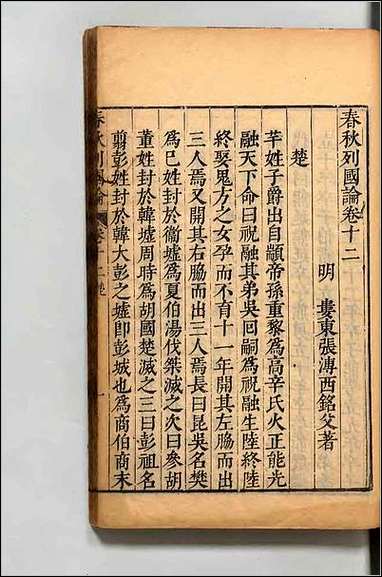 春秋列國論卷十二
明　婁東張溥西銘父著
楚
芈姓子爵出自顓帝孫重黎爲高辛氏火正能光
融天下命曰祝融其弟吳回嗣爲祝融生陸終陸
終娶鬼方之女孕而不育十一年開其左脇而出
三人焉又開其右脇而出三人焉長曰昆吾名樊
爲巳姓封於衞墟爲夏伯湯伐桀滅之次曰參胡
董姓封於韓墟周時爲胡國楚滅之三曰彭祖名
翦彭姓封於韓大彭之墟卽彭城也爲商伯商末
春秋列國論
卷十二楚
一